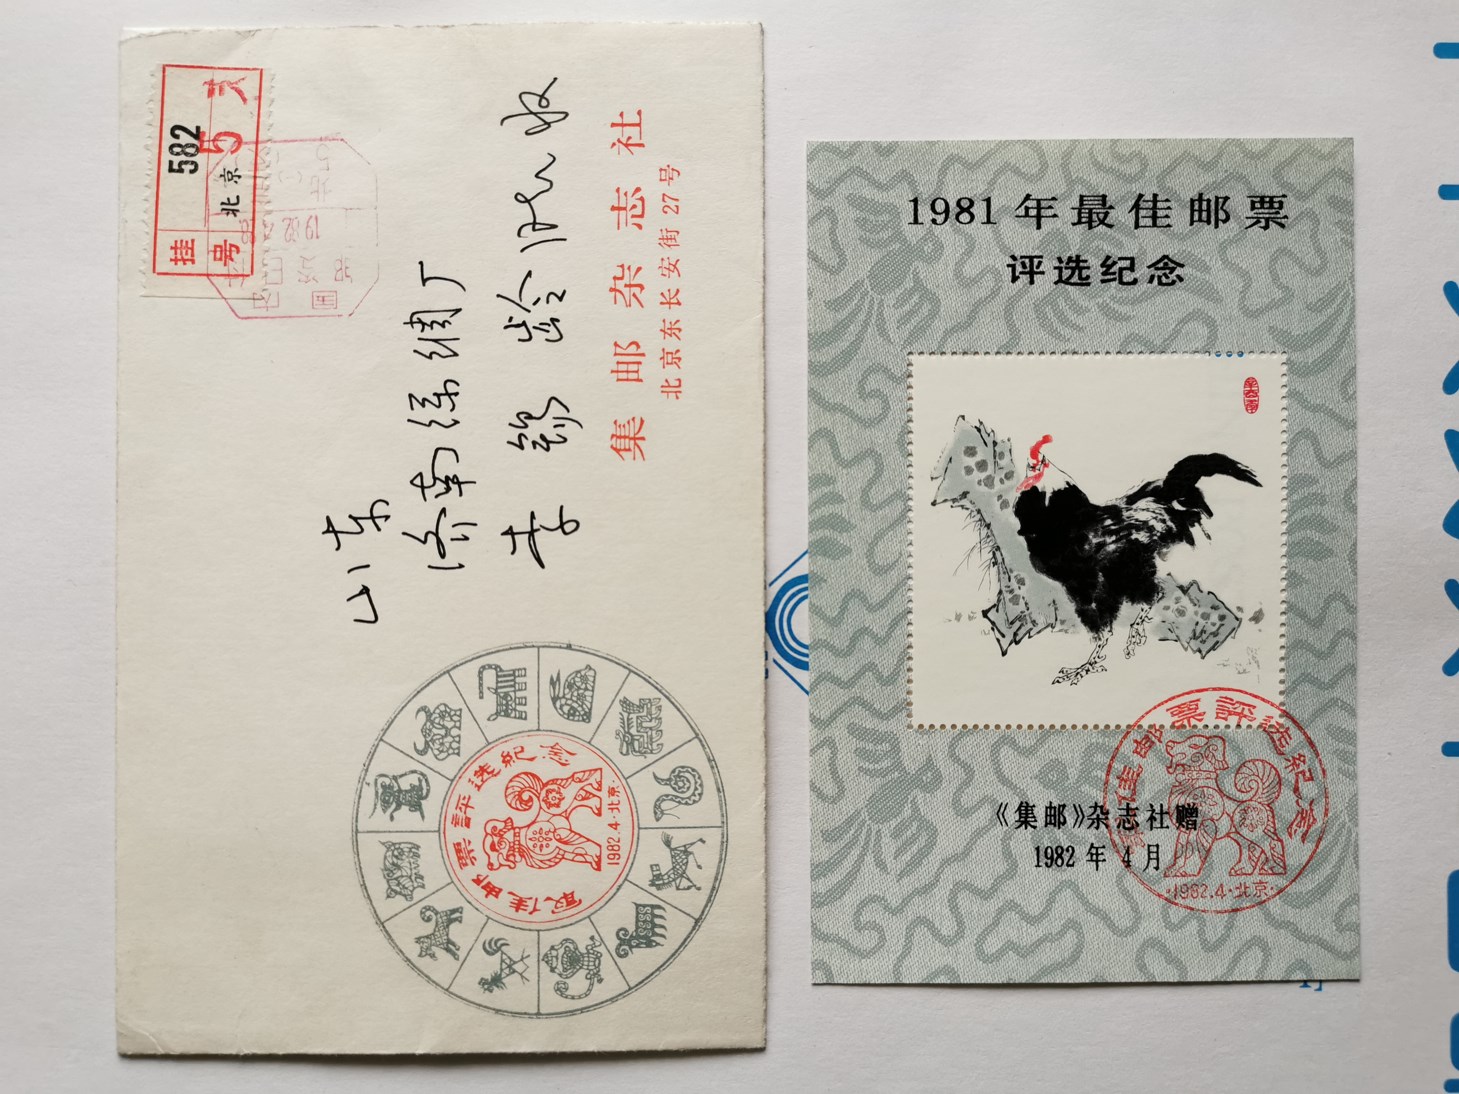 挂号
582
北京
5
山东
济南丝绸厂
李锡龄 收
集邮杂志社
北京东长安街27号
最佳邮票評选纪念
1982.4·北京
1981年最佳邮票
评选纪念
《集邮》杂志社赠
1982年4月
最佳邮票評选纪念
·1982.4·北京·